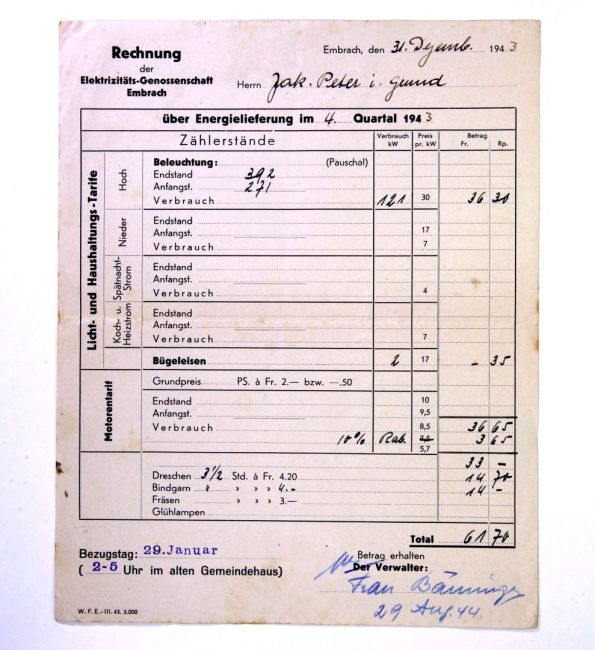 Rechnung
der
Elektrizitäts-Genossenschaft
Embrach
Embrach, den 31. Dezemb. 1943
Herrn Jak. Peter i. Grund
über Energielieferung im 4. Quartal 1943
Zählerstände
Verbrauch kW
Preis pr. kW
Betrag
Fr. Rp.
Licht- und Haushaltungs-Tarife
Hoch
Beleuchtung: (Pauschal)
Endstand 392
Anfangst. 271
Verbrauch 121 30 36 30
Nieder
Endstand
Anfangst. 17
Verbrauch 7
Spätnacht-Strom
Endstand
Anfangst.
Verbrauch 4
Koch- u. Heizstrom
Endstand
Anfangst.
Verbrauch 7
Bügeleisen 2 17 - 35
Motorentarif
Grundpreis PS. à Fr. 2.— bzw. —.50
Endstand 10
Anfangst. 9,5
Verbrauch 8,5 36 65
10% Rab. 7,5 3 65
5,7
33 -
Dreschen 3 1/2 Std. à Fr. 4.20 14 70
Bindgarn " » » » 4.- 14 -
Fräsen » » » 3.—
Glühlampen
Total 61 70
Bezugstag: 29. Januar
( 2-5 Uhr im alten Gemeindehaus)
Betrag erhalten
Der Verwalter:
Frau Bänninger
29 Aug. 44.
W. F. E. - III. 43. 3.000